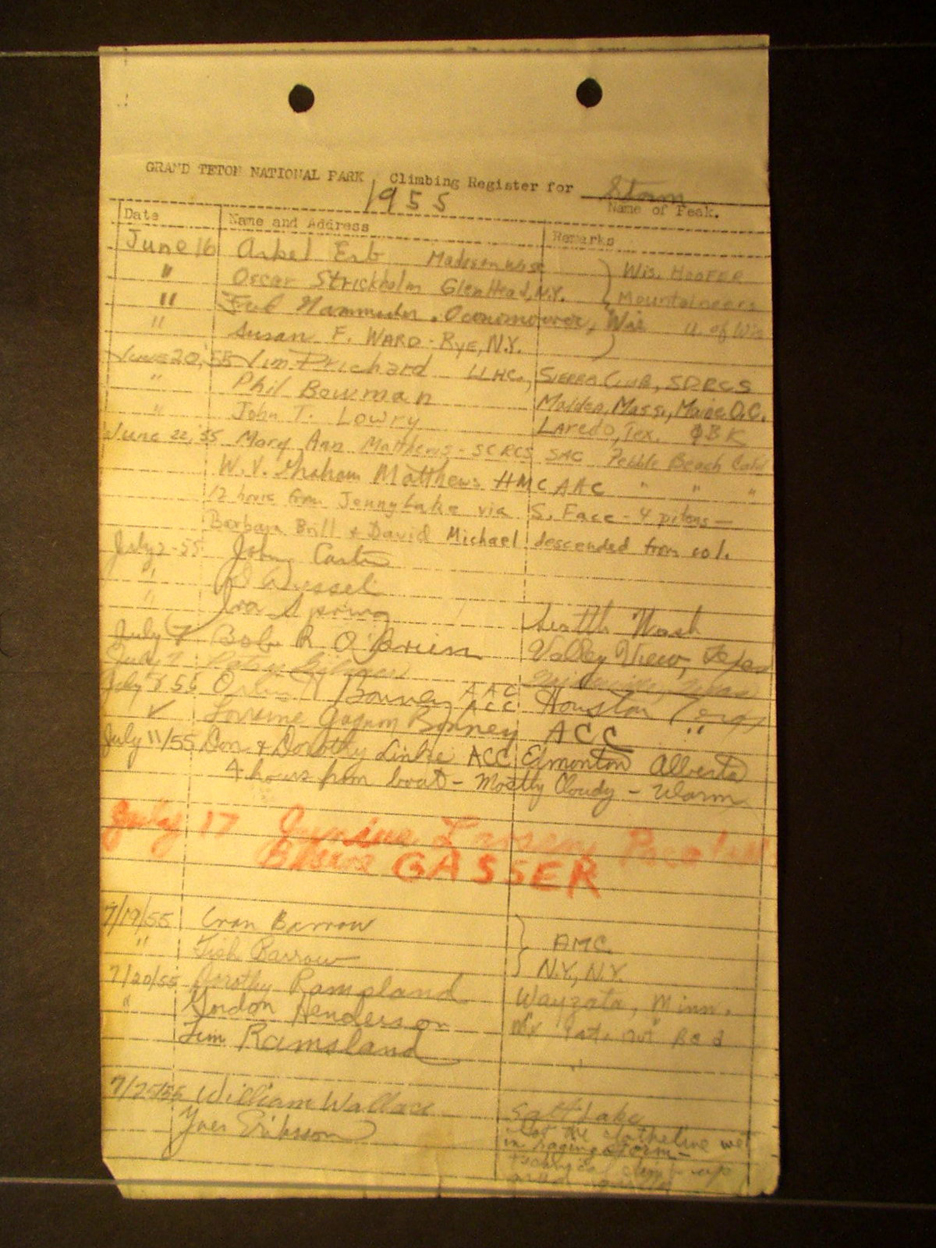 GRAND TETON NATIONAL PARK Climbing Register for Storm
1955 Name of Peak.
Date Name and Address Remarks
June 16 Erb Madison Wisc Wis. HOOFER
" Oscar Strickholm Glen Head, N.Y. Mountaineers
" Oconomowoc, Wis U. of Wis
" Susan F. WARD - RYE, N.Y.
June 20, '55 Jim Prichard SIERRA CLUB, SDRCS
" Phil Bowman Malden, Mass., Maine O.C.
" John T. Lowry Laredo, Tex. ΦBK
June 22, '55 Mary Ann Matthews - SCRCS SAC Pebble Beach Calif
W.V. Graham Matthews HMC AAC " " "
12 hours from Jenny Lake via S. Face - 4 pitons —
Barbara Brill & David Michael descended from col.
July 2-55 John
"
" Ira Spring Seattle Wash
July 7 Bob R. O'Brien Valley View, Texas
July 7
July 8 55 Orrin H Bonney AAC ACC Houston Texas
✓ Lorraine Gagnon Bonney ACC "
July 11/55 Don & Dorothy Linke ACC Edmonton Alberta
4 hours from boat - Mostly Cloudy - Warm
July 17 Larsen,
GASSER
7/19/55 Cran Barrow AMC
" Barrow N.Y, N.Y.
7/20/55 Dorothy Ramsland Wayzata, Minn.
" Gordon Henderson not Bad
Jim Ramsland "
William Wallace Salt Lake
Eriksson wet
in raging storm -